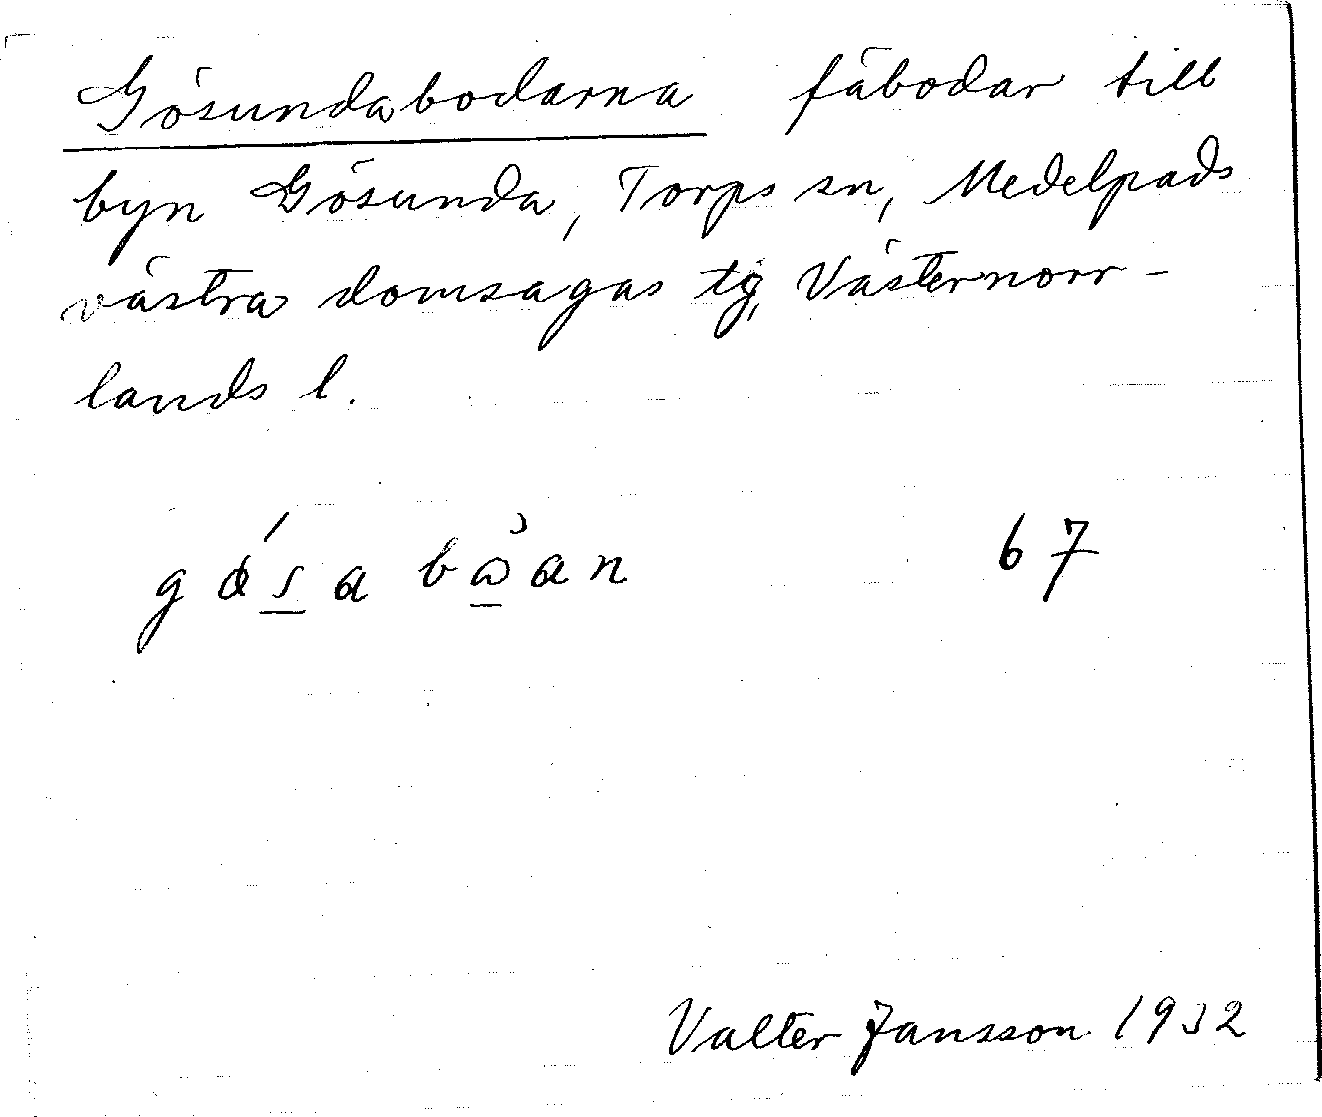 Gösundabodarna fäbodar till
byn Gösunda, Torps sn, Medelpads
västra domsagas tg, Västernorr-
lands l.
67
Valter Jansson 1932